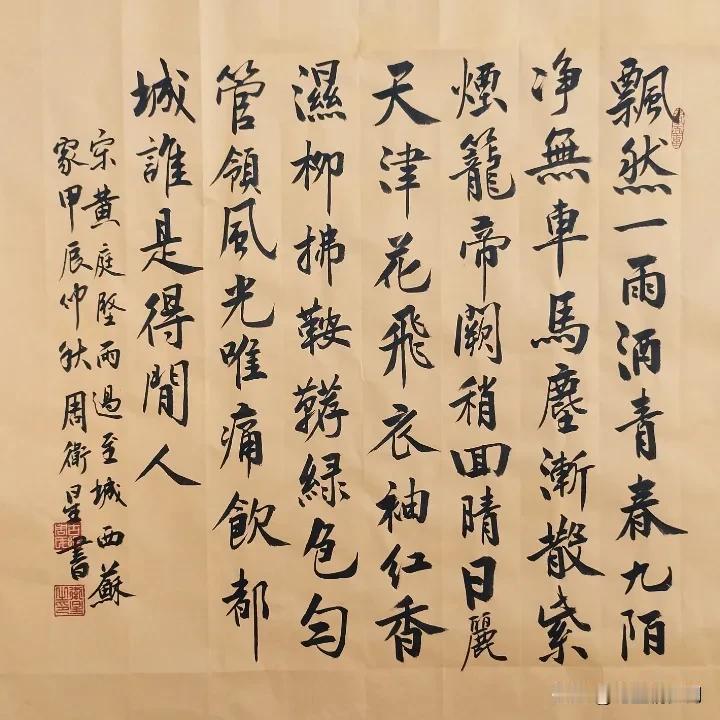 飄然一雨洒青春九陌
净無車馬塵漸散紫
煙籠帝闕稍囬晴日麗
天津花飛衣袖紅香
濕柳拂鞍韉緑色匀
管領風光唯痛飲都
城誰是得閒人
宋黄庭堅雨過至城西蘇
家甲辰仲秋周衛星書